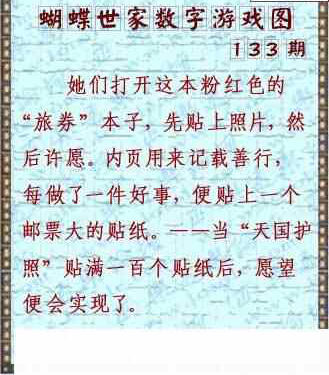 蝴蝶世家数字游戏图
133期
她们打开这本粉红色的
“旅券”本子，先贴上照片，然
后许愿。内页用来记载善行，
每做了一件好事，便贴上一个
邮票大的贴纸。——当“天国护
照”贴满一百个贴纸后，愿望
便会实现了。